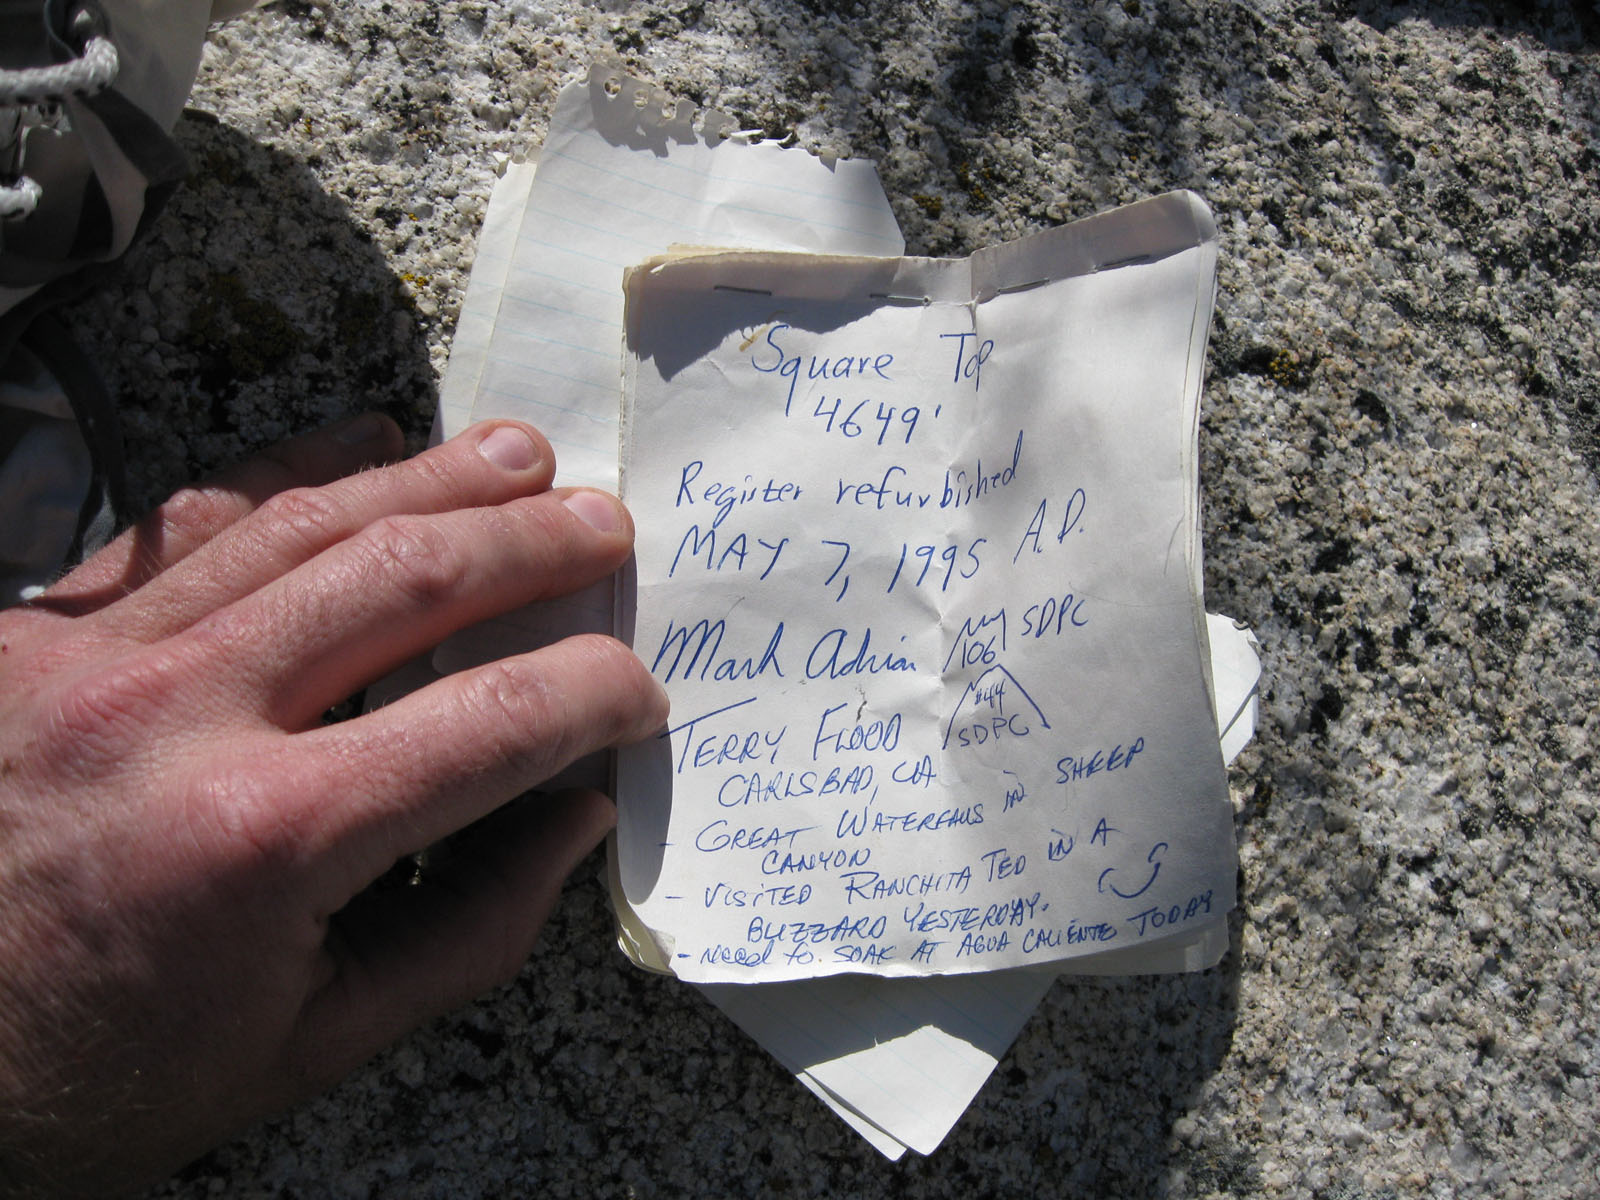 Square Top
4649'
Register refurbished
MAY 7, 1995 A.D.
Mark Adrian my 106 SDPC
TERRY FLOOD #44 SDPC
CARLSBAD, CA
- GREAT WATERFALLS IN SHEEP
CANYON
- VISITED RANCHITA TED IN A
BLIZZARD YESTERDAY.
- need to SOAK AT AGUA CALIENTE TODAY